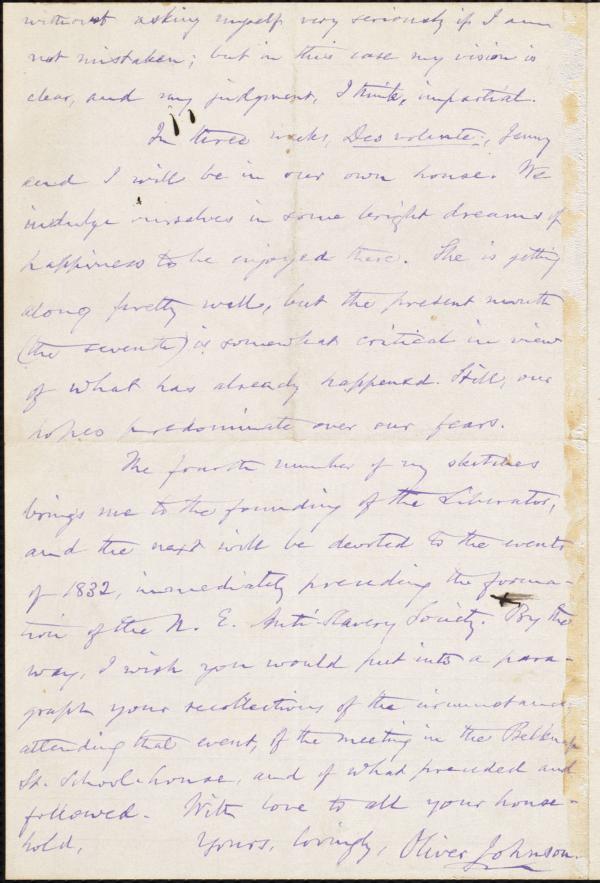 without asking myself very seriously if I am
not mistaken; but in this case my vision is
clear, and my judgment, I think, impartial.
In three weeks, Deo volente, Jenny
and I will be in our own house. We
indulge ourselves in some bright dreams of
happiness to be enjoyed there. She is getting
along pretty well, but the present month
(the seventh) is somewhat critical in view
of what has already happened. Still, our
hopes predominate over our fears.
The fourth number of my sketches
brings me to the founding of the Liberator,
and the next will be devoted to the events
of 1832, immediately preceding the forma-
tion of the N. E. Anti-Slavery Society. By the
way, I wish you would put into a para-
graph your recollections of the circumstances
attending that event, of the meeting in the Belknap
St. School-house, and of what preceded and
followed. With love to all your house-
hold,
Yours, lovingly, Oliver Johnson.